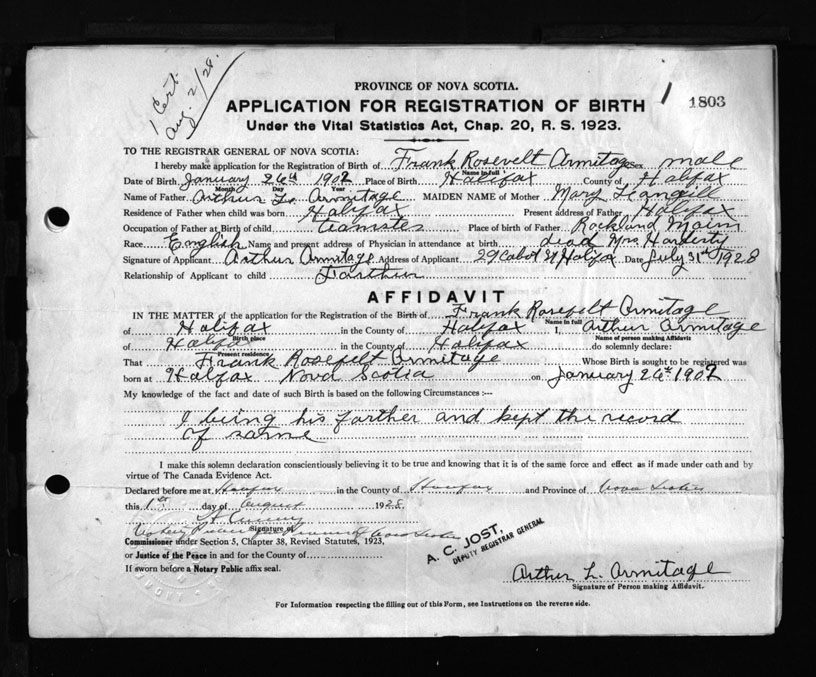 1 Cert.
Aug. 2/28.
PROVINCE OF NOVA SCOTIA.
APPLICATION FOR REGISTRATION OF BIRTH
1 1803
Under the Vital Statistics Act, Chap. 20, R. S. 1923.
TO THE REGISTRAR GENERAL OF NOVA SCOTIA:
I hereby make application for the Registration of Birth of Frank Rosevelt Armitage Sex male
Name in full
Date of Birth January 26th 1902 Place of Birth Halifax County of Halifax
Month Day Year
Name of Father Arthur L. Armitage MAIDEN NAME of Mother Mary
Residence of Father when child was born Halifax Present address of Father Halifax
Occupation of Father at Birth of child teamster Place of birth of Father Rockland Maine
Race English Name and present address of Physician in attendance at birth dead Mrs Harderty
Signature of Applicant Arthur Armitage Address of Applicant 29 Cabot St Halifax Date July 31st 1928
Relationship of Applicant to child Farthur
AFFIDAVIT
IN THE MATTER of the application for the Registration of the Birth of Frank Rosefelt Armitage
Name in full
of Halifax in the County of Halifax I, Arthur Armitage
Birth place Name of person making Affidavit
of Halifax in the County of Halifax do solemnly declare:
Present residence
That Frank Rosefelt Armitage Whose Birth is sought to be registered was
born at Halfax Nova Scotia on January 26th 1902
My knowledge of the fact and date of such Birth is based on the following Circumstances :--
I being his farther and kept the record
of same
I make this solemn declaration conscientiously believing it to be true and knowing that it is of the same force and effect as if made under oath and by
virtue of The Canada Evidence Act.
Declared before me at Halifax in the County of Halifax and Province of Nova Scotia
this 1st day of August 1928.
Signature of
Commissioner under Section 5, Chapter 38, Revised Statutes, 1923,
or Justice of the Peace in and for the County of
If sworn before a Notary Public affix seal.
A. C. JOST,
DEPUTY REGISTRAR GENERAL
Arthur L. Armitage
Signature of Person making Affidavit.
For Information respecting the filling out of this Form, see Instructions on the reverse side.